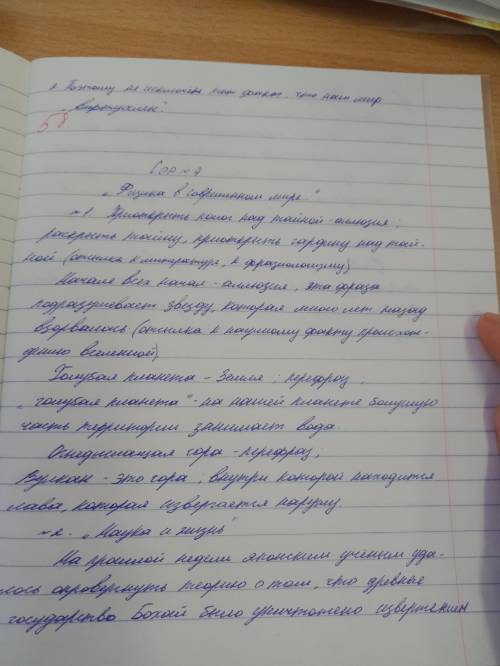 « Поэтому не исключен тот факт, что наш мир
виртуален".
58
Сор №4
„Физика в современном мире."
№1 Приоткрыть полог над тайной - аллюзия;
раскрыть тайну, приоткрыть гардину над тай-
ной (отсылка к литературе, к фразиологизму)
Начало всех начал - аллюзия, эта фраза
подразумевает звезду, которая много лет назад
взорвалась (отсылка к научному факту происхож-
дению вселенной)
Голубая планета - Земля; перефраз;
„голубая планета" - на нашей планете большую
часть территории занимает вода.
Огнедышащая гора - перефраз;
Вулкан - это гора, внутри которой находится
лава, которая извергается наружу.
№2. „Наука и жизнь"
На прошлой недели японским ученым уда-
лось опровергнуть теорию о том, что древнее
государство Бохай было уничтожено извержением